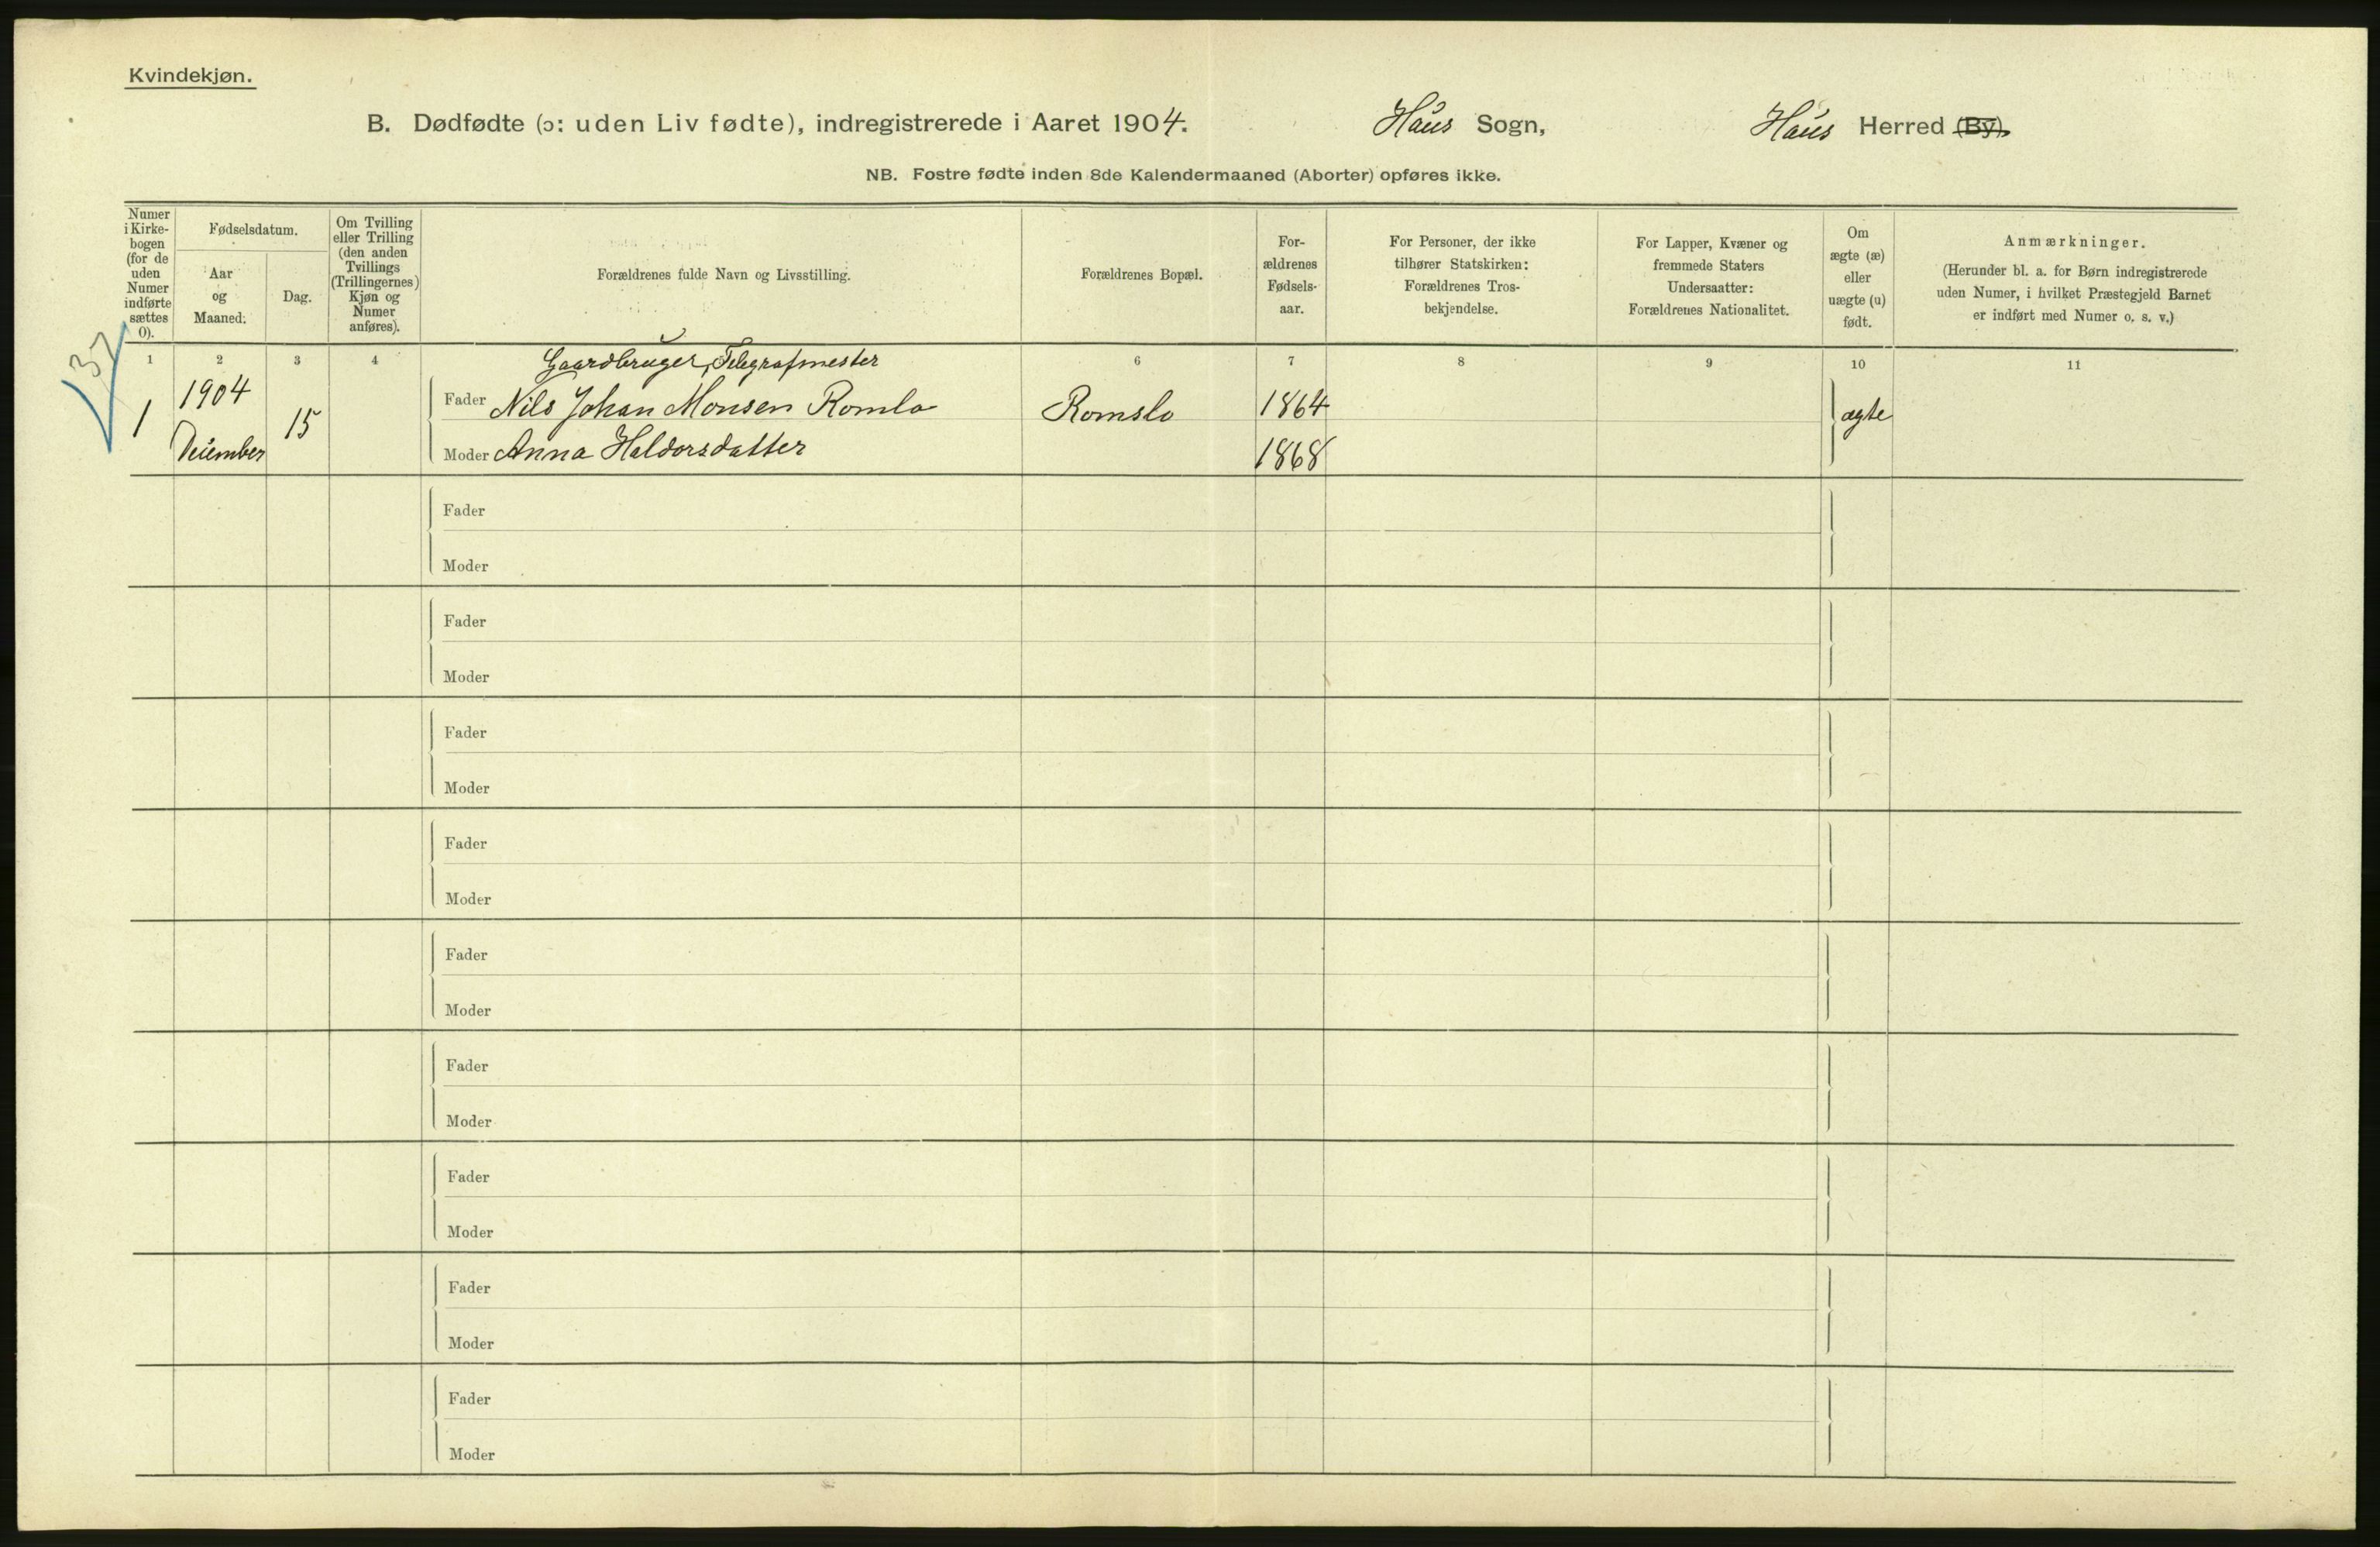 Kvindekjøn.
B. Dødfødte (ɔ: uden Liv fødte), indregistrerede i Aaret 1904. Haus Sogn, Haus Herred (By).
NB. Fostre fødte inden 8de Kalendermaaned (Aborter) opføres ikke.
Numer
i Kirke-
bogen
(for de
uden
Numer
indførte
sættes
0).
Fødselsdatum.
Aar
og
Maaned.
Dag.
Om Tvilling
eller Trilling
(den anden
Tvillings
(Trillingernes)
Kjøn og
Numer
anføres).
Forældrenes fulde Navn og Livsstilling.
Forældrenes Bopæl.
For-
ældrenes
Fødsels-
aar.
For Personer, der ikke
tilhører Statskirken:
Forældrenes Tros-
bekjendelse.
For Lapper, Kvæner og
fremmede Staters
Undersaatter:
Forældrenes Nationalitet.
Om
ægte (æ)
eller
uægte (u)
født.
Anmærkninger.
(Herunder bl. a. for Børn indregistrerede
uden Numer, i hvilket Præstegjeld Barnet
er indført med Numer o. s. v.)
1 2 3 4 6 7 8 9 10 11
37
Gaardbruger, Telegrafmester
1 1904 15 Fader Nils Johan Monsen Romlo Romslo 1864 ægte
December Moder Anna Haldorsdatter 1868
Fader
Moder
Fader
Moder
Fader
Moder
Fader
Moder
Fader
Moder
Fader
Moder
Fader
Moder
Fader
Moder
Fader
Moder